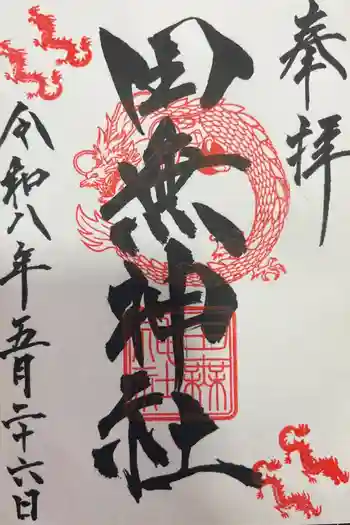 奉拝
田無神社
田無神社
令和八年五月二十六日